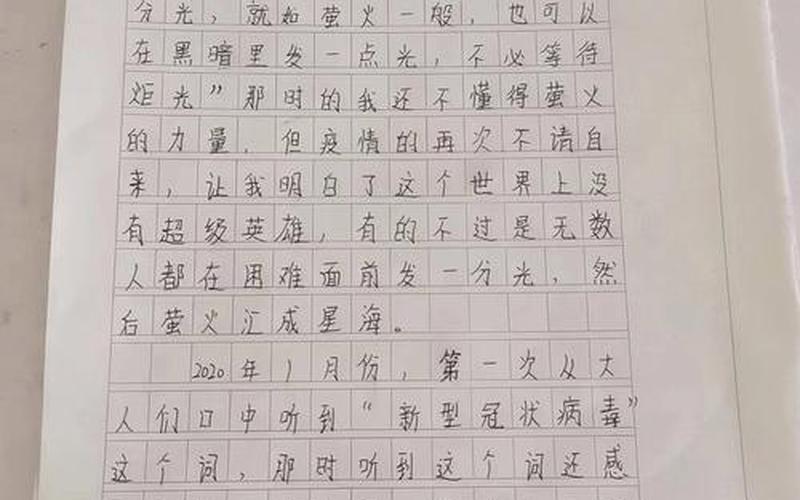 分光，就如萤火一般，也可以
在黑暗里发一点光，不必等待
炬光”那时的我还不懂得萤火
的力量，但疫情的再次不请自
来，让我明白了这个世界上没
有超级英雄，有的不过是无数
人都在困难面前发一分光，然
后萤火汇成星海。
2020年1月份，第一次从大
人们口中听到“新型冠状病毒”
这个词，那时听到这个词还感